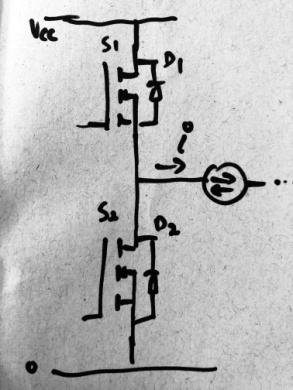 Vcc
S1
D1
i0
S2
D2
0